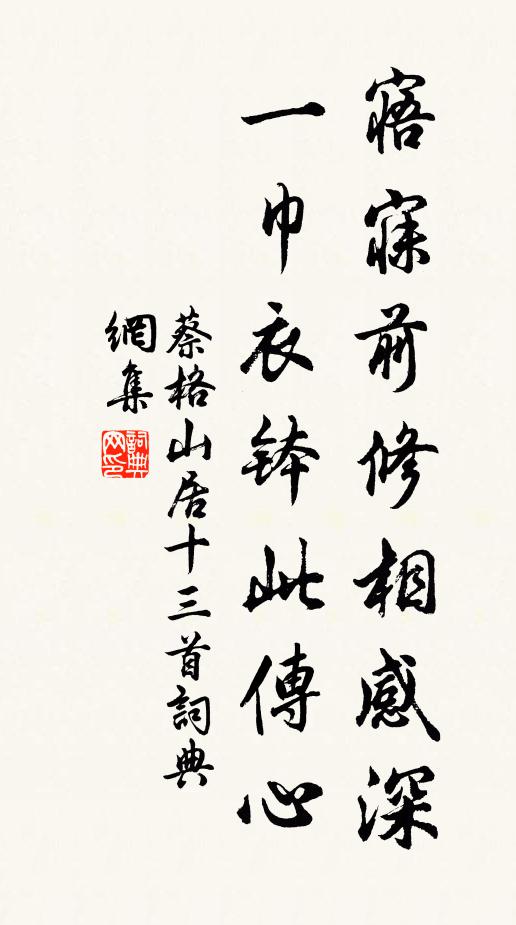 寤寐前修相感深
一巾衣鉢此傳心
蔡格山居十三首詞典
網集
詞典
网印